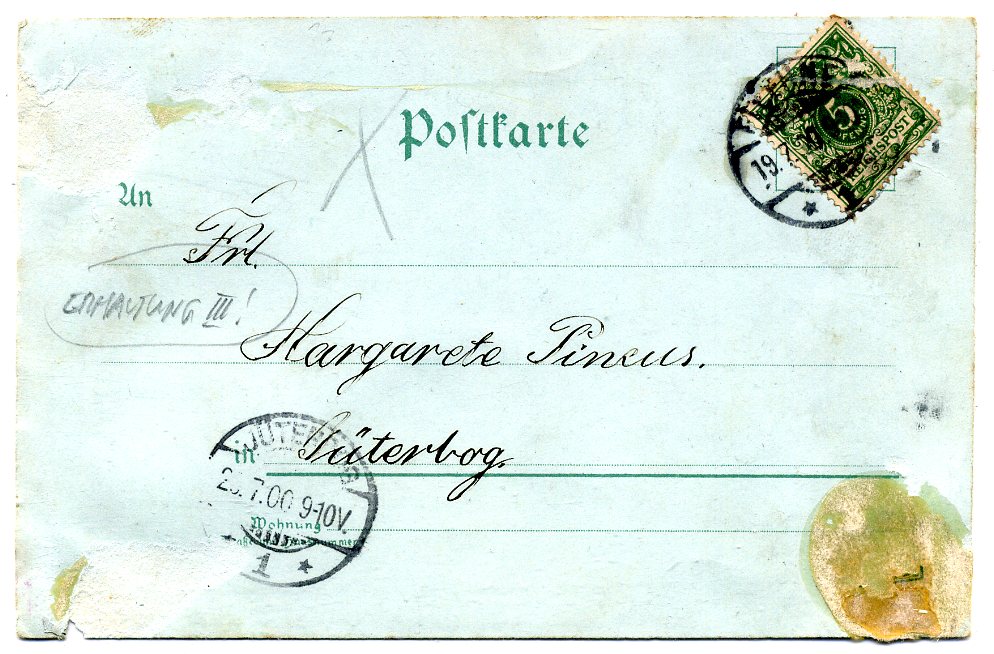 Postkarte
5
REICHSPOST
19.7.
An
Frl.
ERHALTUNG III!
Margarete Pincus.
JÜTERBOG
in Jüterbog.
7.00 9-10V.
Wohnung
1